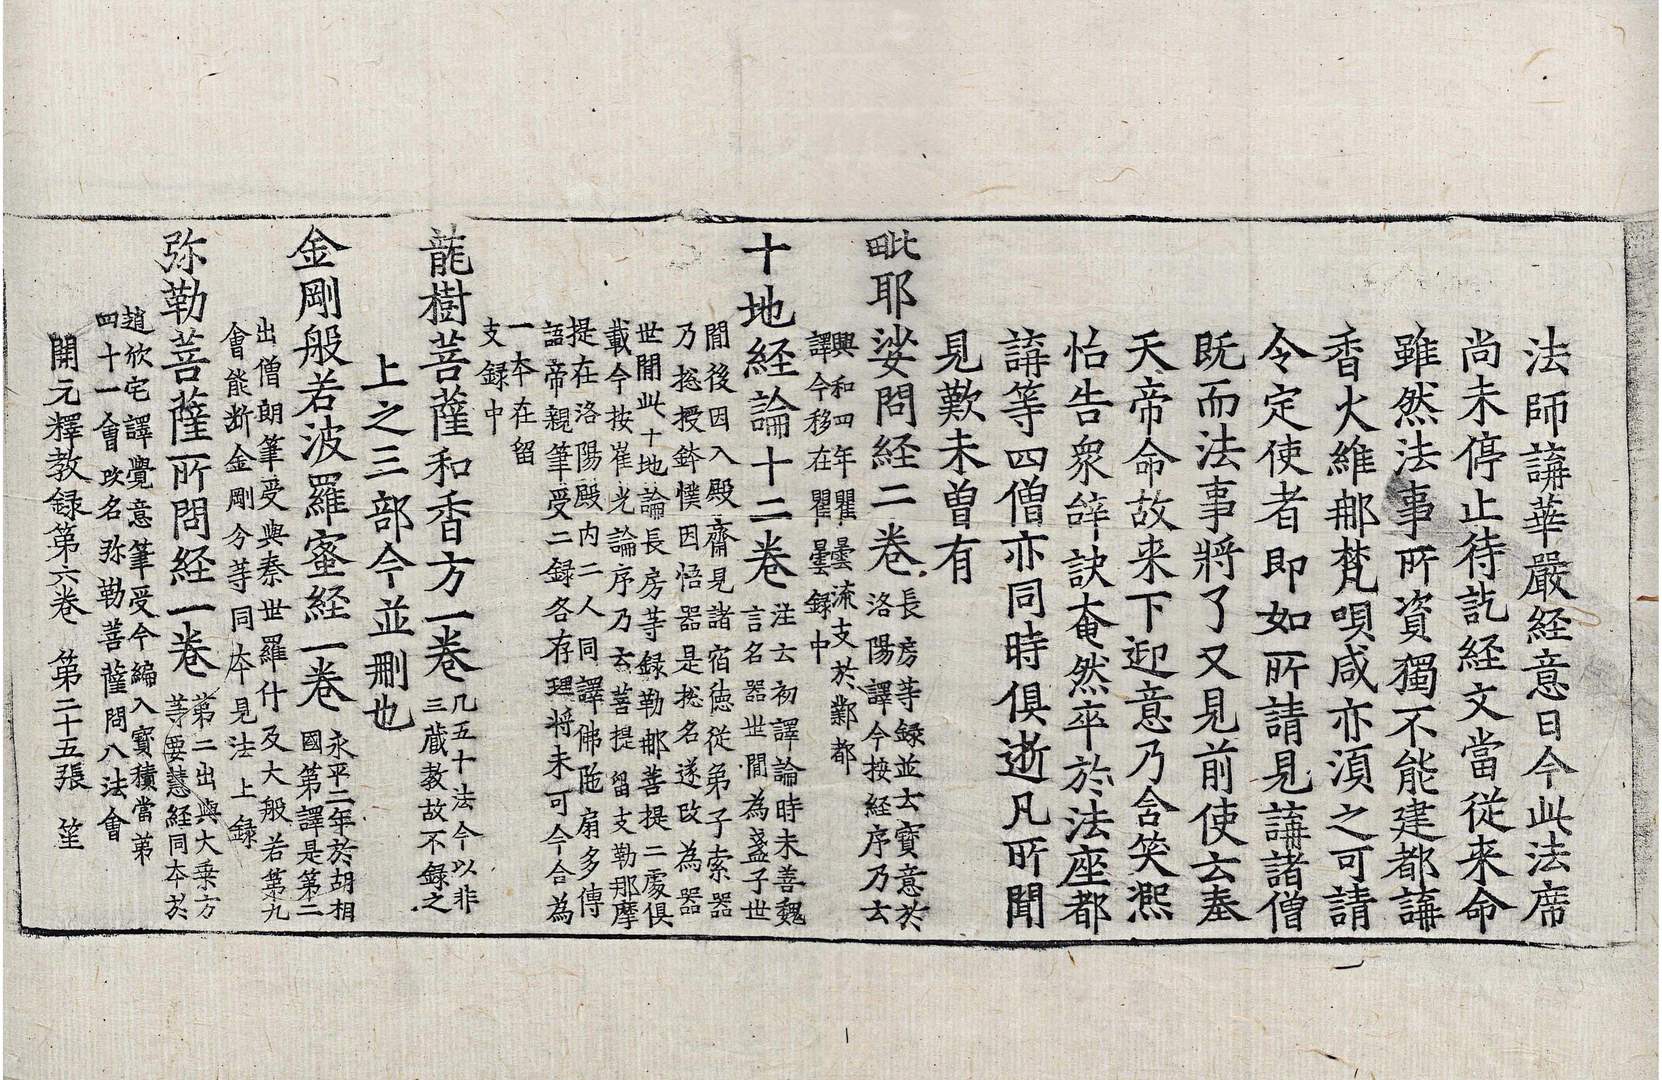 法師講華嚴経意日今此法席
尚未停止待訖経文當從来命
雖然法事所資獨不能建都講
香火維那梵唄咸亦湏之可請
令定使者即如所請見講諸僧
既而法事將了又見前使云奉
天帝命故来下迎意乃含笑熈
怡告衆辝訣奄然卒於法座都
講等四僧亦同時俱逝凡所聞
見歎未曾有
毗耶娑問経二巻
長房等録並云寶意於
洛陽譯今按経序乃云
興和四年瞿曇流支於鄴都
譯今移在瞿曇録中
十地経論十二巻
注云初譯論時未善魏
言名器世間為盞子世
間後因入殿齋見諸宿徳從弟子索器
乃揔授鉢襆因悟器是揔名遂改為器
世間此十地論長房等録勒那菩提二處俱
載今按崔光論序乃云菩提留支勒那摩
提在洛陽殿内二人同譯佛陁扇多傳
語帝親筆受二録各存理將未可今合為
一本在留
支録中
龍樹菩薩和香方一巻
凡五十法今以非
三蔵教故不録之
上之三部今並刪也
金剛般若波羅蜜経一巻
永平二年於胡相
國第譯是第二
出僧朗筆受與秦世羅什及大般若第九
會能断金剛分等同本見法上録
弥勒菩薩所問経一巻
第二出與大乗方
等要慧経同本於
趙欣宅譯覺意筆受今編入寶積當第
四十一會改名弥勒菩薩問八法會
開元釋教録第六巻　第二十五張　笙